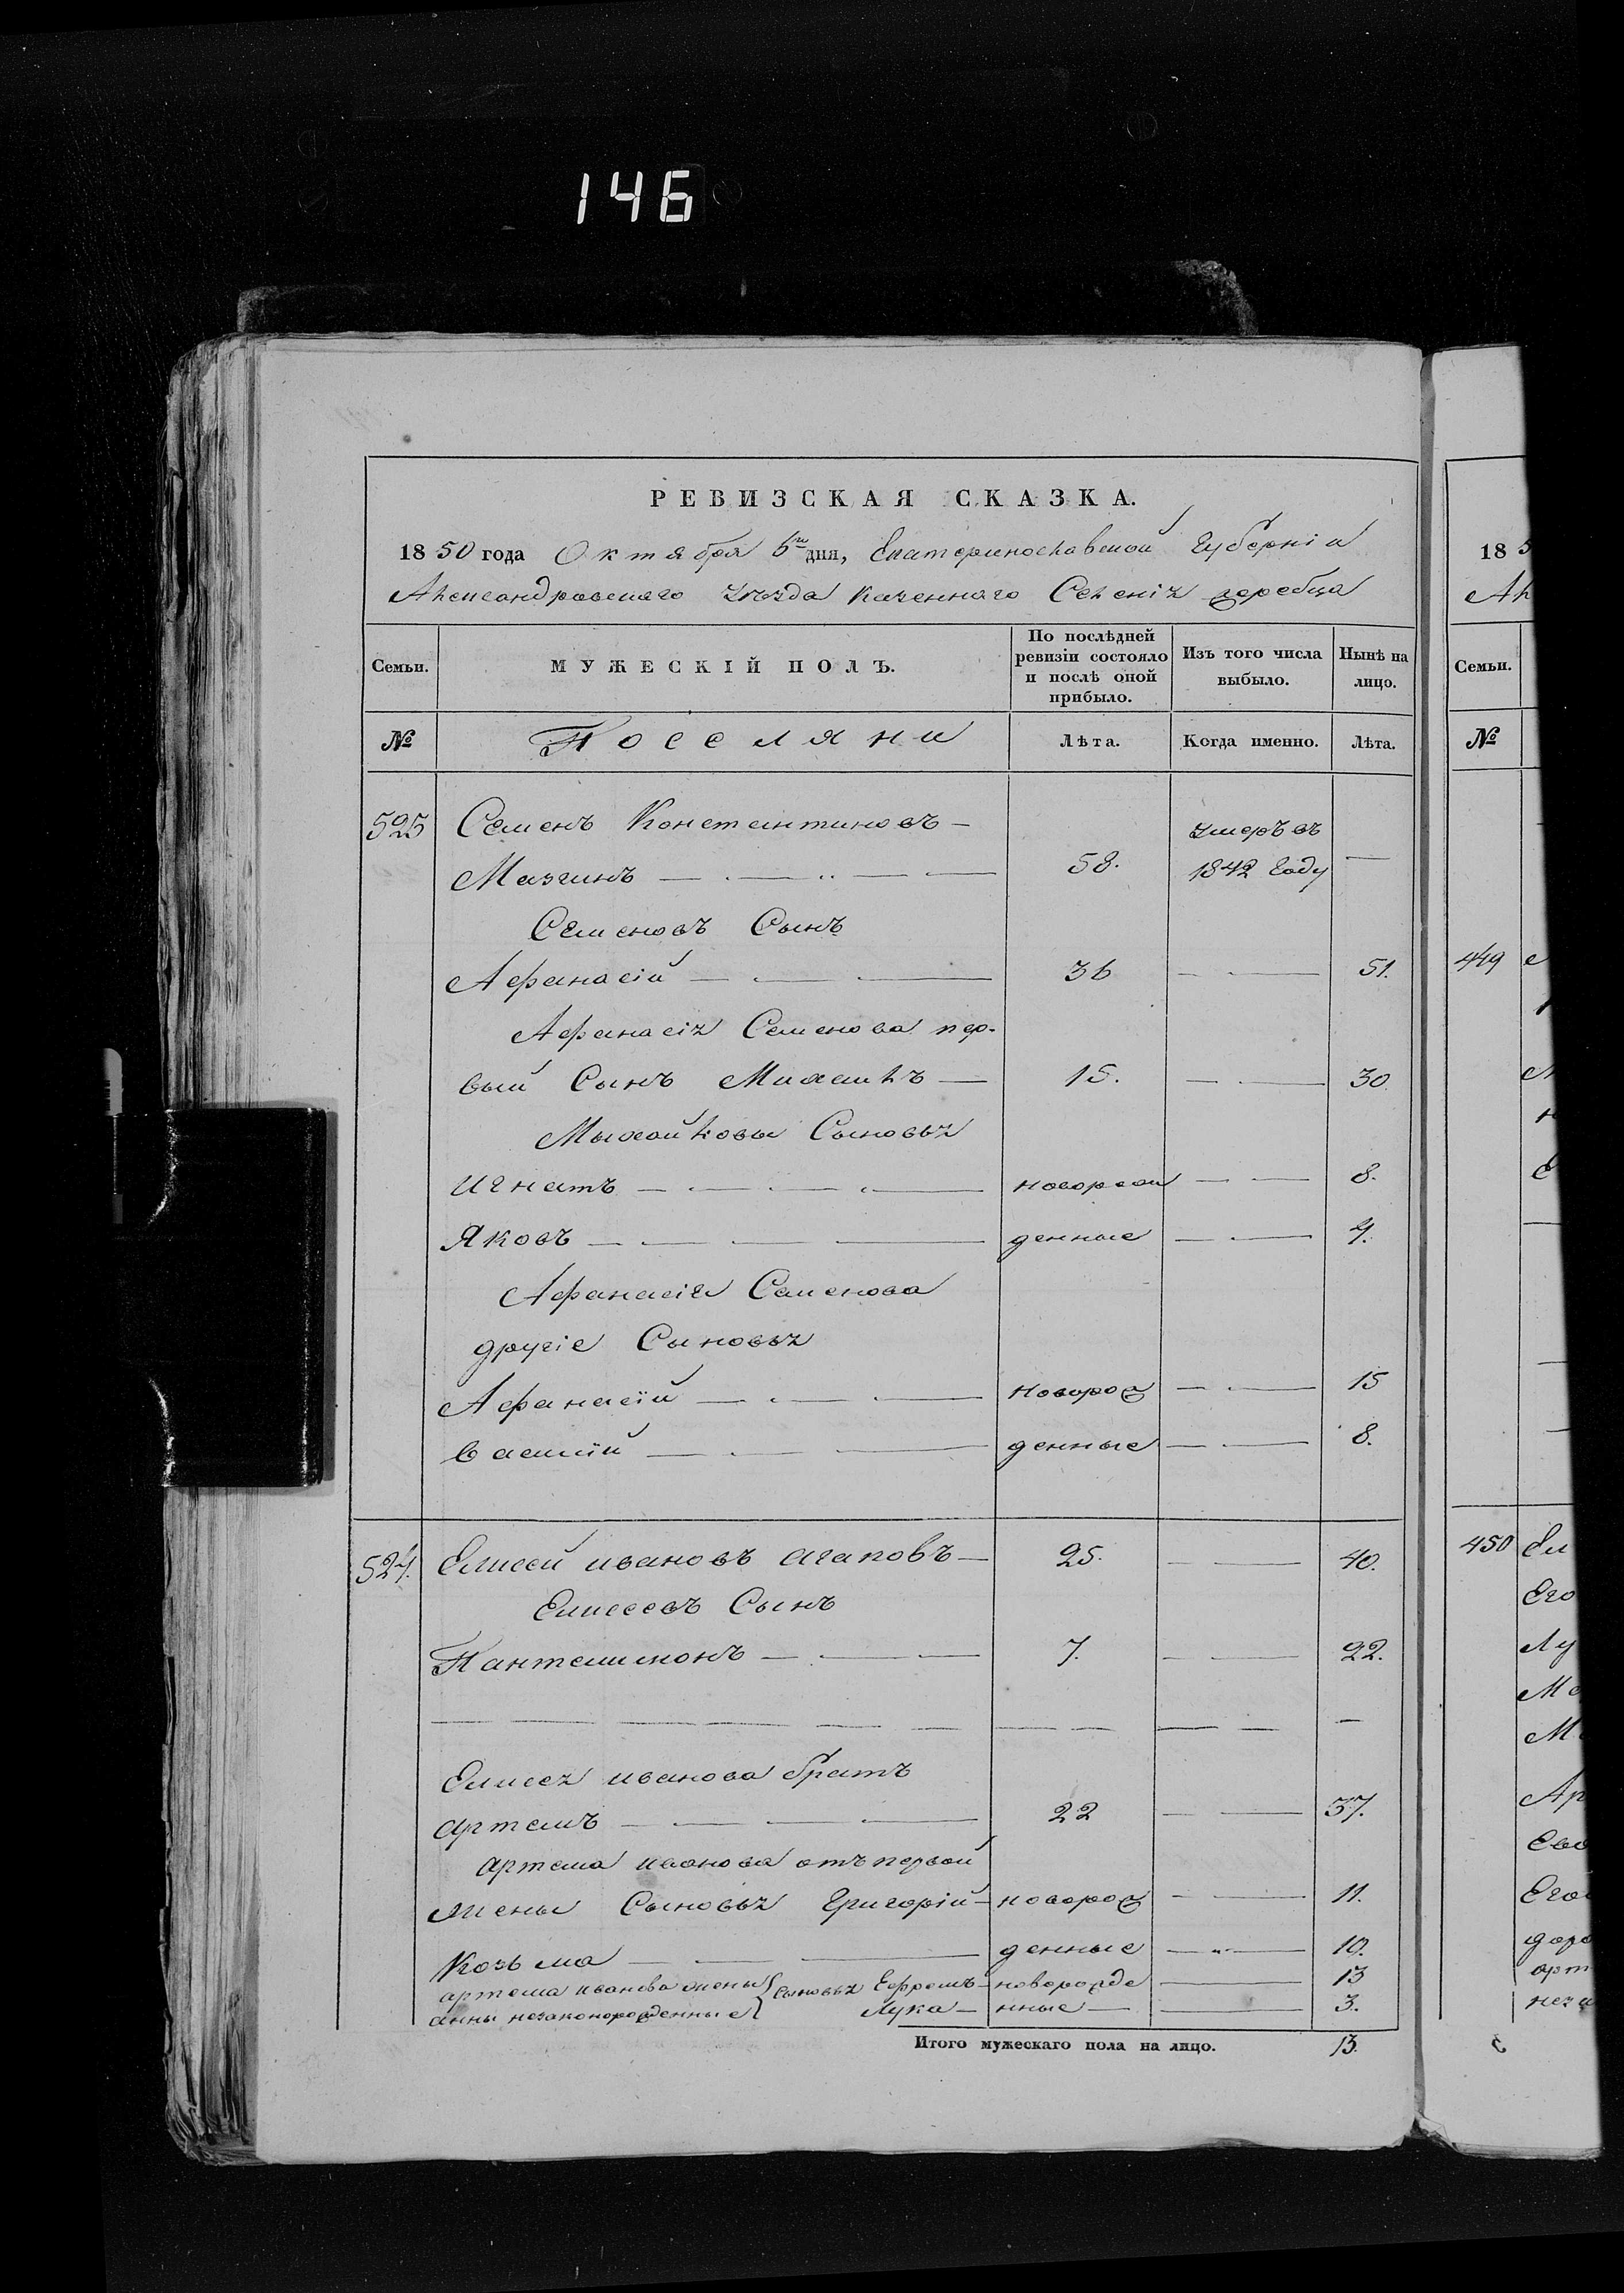 146
РЕВИЗСКАЯ СКАЗКА.
1850 года Октября 6го дня, Екатеринославской Губерніи
Александровскаго уѣзда Казеннаго Селенія Жеребца
Семьи. МУЖЕСКІЙ ПОЛЪ. По послѣдней ревизіи состояло и послѣ оной прибыло. Изъ того числа выбыло. Нынѣ на лицо.
№ Посселяни Лѣта. Когда именно. Лѣта.
525 Семенъ Константиновъ — умеръ въ
Мазгинъ — 58. 1842 Году —
Семеновъ Сынъ
Афанасій — 36 — 51.
Афанасія Семенова пер-
вый Сынъ Михаилъ — 15. — 30.
Михайловы Сыновья
Игнатъ — новорож — 8.
Яковъ — денные — 4.
Афанасія Семенова
другіе Сыновья
Афанасій — новорож — 15
Василій — денные — 8.
524. Елисей Ивановъ Агаповъ — 25. — 40.
Елисеевъ Сынъ
Пантелимонъ — 7. — 22.
Елисея Иванова братъ
Артемъ — 22 — 37.
Артема Иванова отъ первой
жены Сыновья Григорій — новорож — 11.
Козьма — денные — 10.
Артема Иванова жены Сыновья Ефремъ — новорожде — 13
Анны незаконорожденные Лука — нные — 3.
Итого мужескаго пола на лицо. 13.
18 5
Семьи.
№
449
450 Ел
Его
Лу
Ар
Его